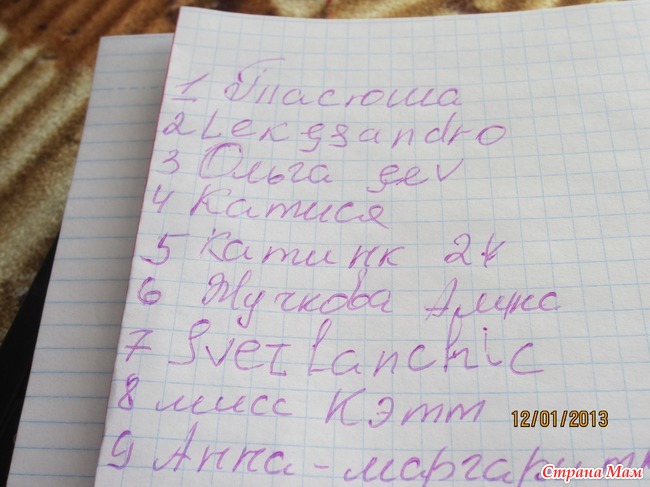 1 Тасюша
2 Lekssandro
3 Ольга gev
4 Катися
5 Катинк 24
6 Жучкова Алис
7 Svetlanchic
8 мисс Кэтт
12/01/2013
9 Анна-маргарит
Страна Мам